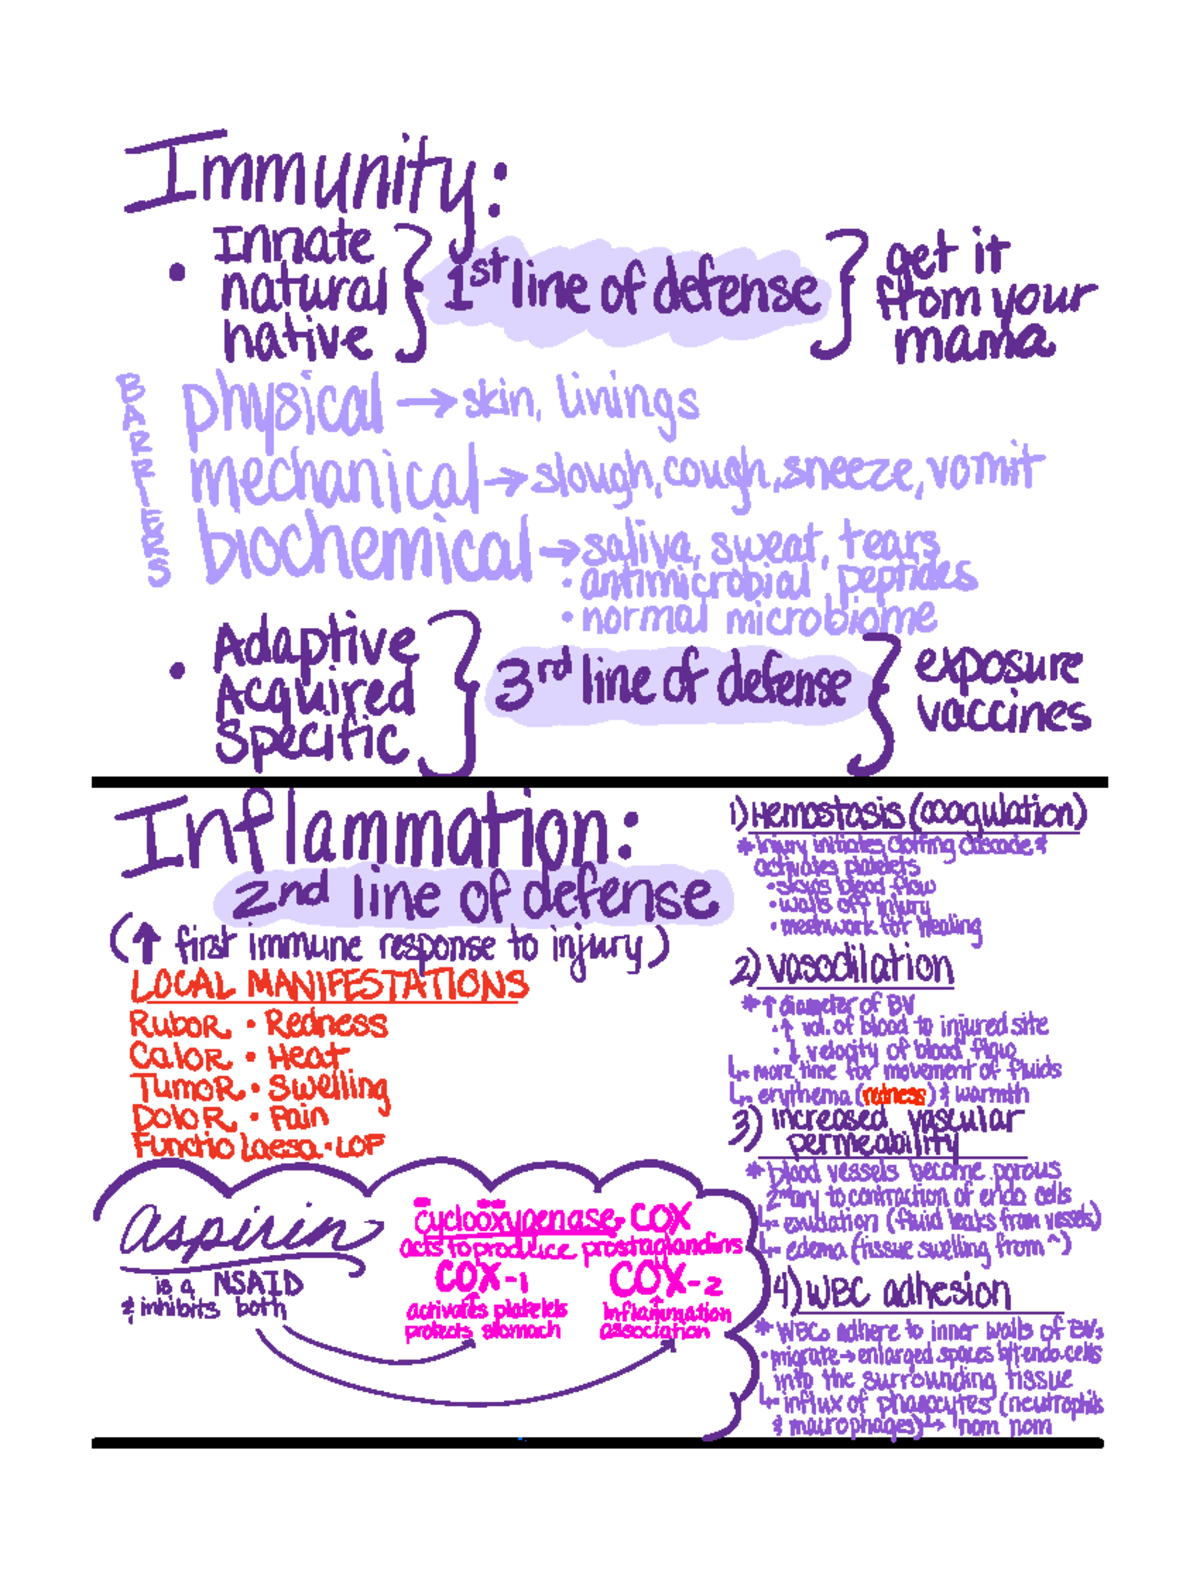 Immunity:
• Innate
natural
native
1st line of defense
get it
from your
mama
BARRIERS
physical → skin, linings
mechanical → slough, cough, sneeze, vomit
biochemical → saliva, sweat, tears
• antimicrobial peptides
• normal microbiome
• Adaptive
Acquired
Specific
3rd line of defense
exposure
vaccines
Inflammation:
2nd line of defense
(↑ first immune response to injury)
LOCAL MANIFESTATIONS
Rubor • Redness
Calor • Heat
Tumor • Swelling
Dolor • Pain
Functio laesa • LOF
aspirin
is a NSAID
& inhibits both
cyclooxygenase COX
acts to produce prostaglandins
COX-1
activates platelets
protects stomach
COX-2
inflammation
association
1) Hemostasis (coagulation)
* Injury initiates clotting cascade &
activates platelets
• slows blood flow
• walls off injury
• meshwork for healing
2) vasodilation
* ↑ diameter of BV
• ↑ vol. of blood to injured site
• ↓ velocity of blood flow
↳ more time for movement of fluids
↳ erythema (redness) & warmth
3) increased vascular
permeability
* blood vessels become porous
2ndary to contraction of endo cells
↳ exudation (fluid leaks from vessels)
↳ edema (tissue swelling from ^)
4) WBC adhesion
* WBCs adhere to inner walls of BVs
• migrate → enlarged spaces b/t endo.cells
into the surrounding tissue
↳ influx of phagocytes (neutrophils
& macrophages) ↳ nom nom